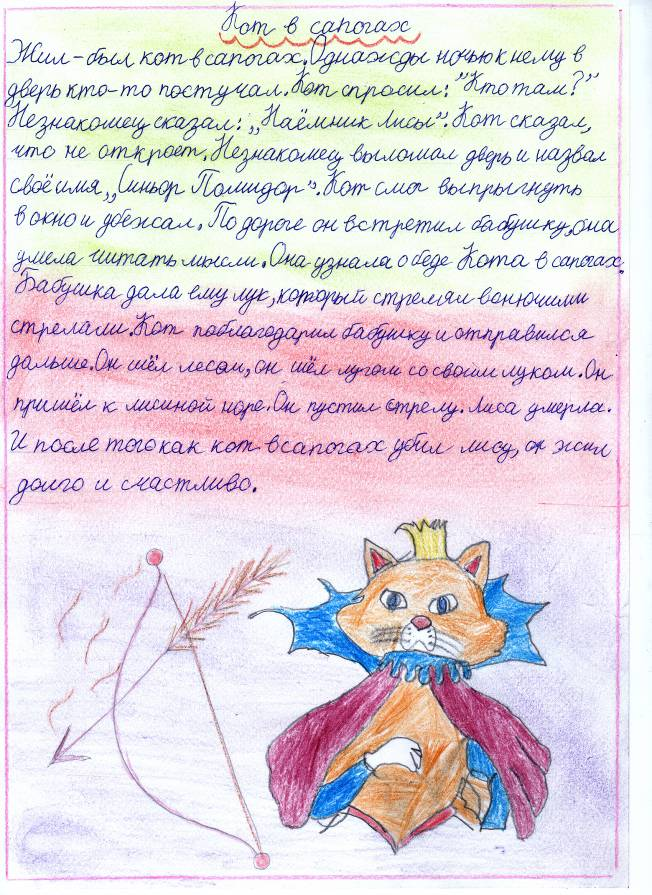 Кот в сапогах
Жил-был кот в сапогах. Однажды ночью к нему в
дверь кто-то постучал. Кот спросил: "Кто там?"
Незнакомец сказал: „Наёмник Лисы". Кот сказал,
что не откроет. Незнакомец выломал дверь и назвал
своё имя „Синьор Помидор". Кот смог выпрыгнуть
в окно и убежал. По дороге он встретил бабушку, она
умела читать мысли. Она узнала о беде Кота в сапогах.
Бабушка дала ему лук, который стрелял вонючими
стрелами. Кот поблагодарил бабушку и отправился
дальше. Он шёл лесом, он шёл лугом со своим луком. Он
пришёл к лисиной норе. Он пустил стрелу. Лиса умерла.
И после того как кот в сапогах убил лису, он жил
долго и счастливо.